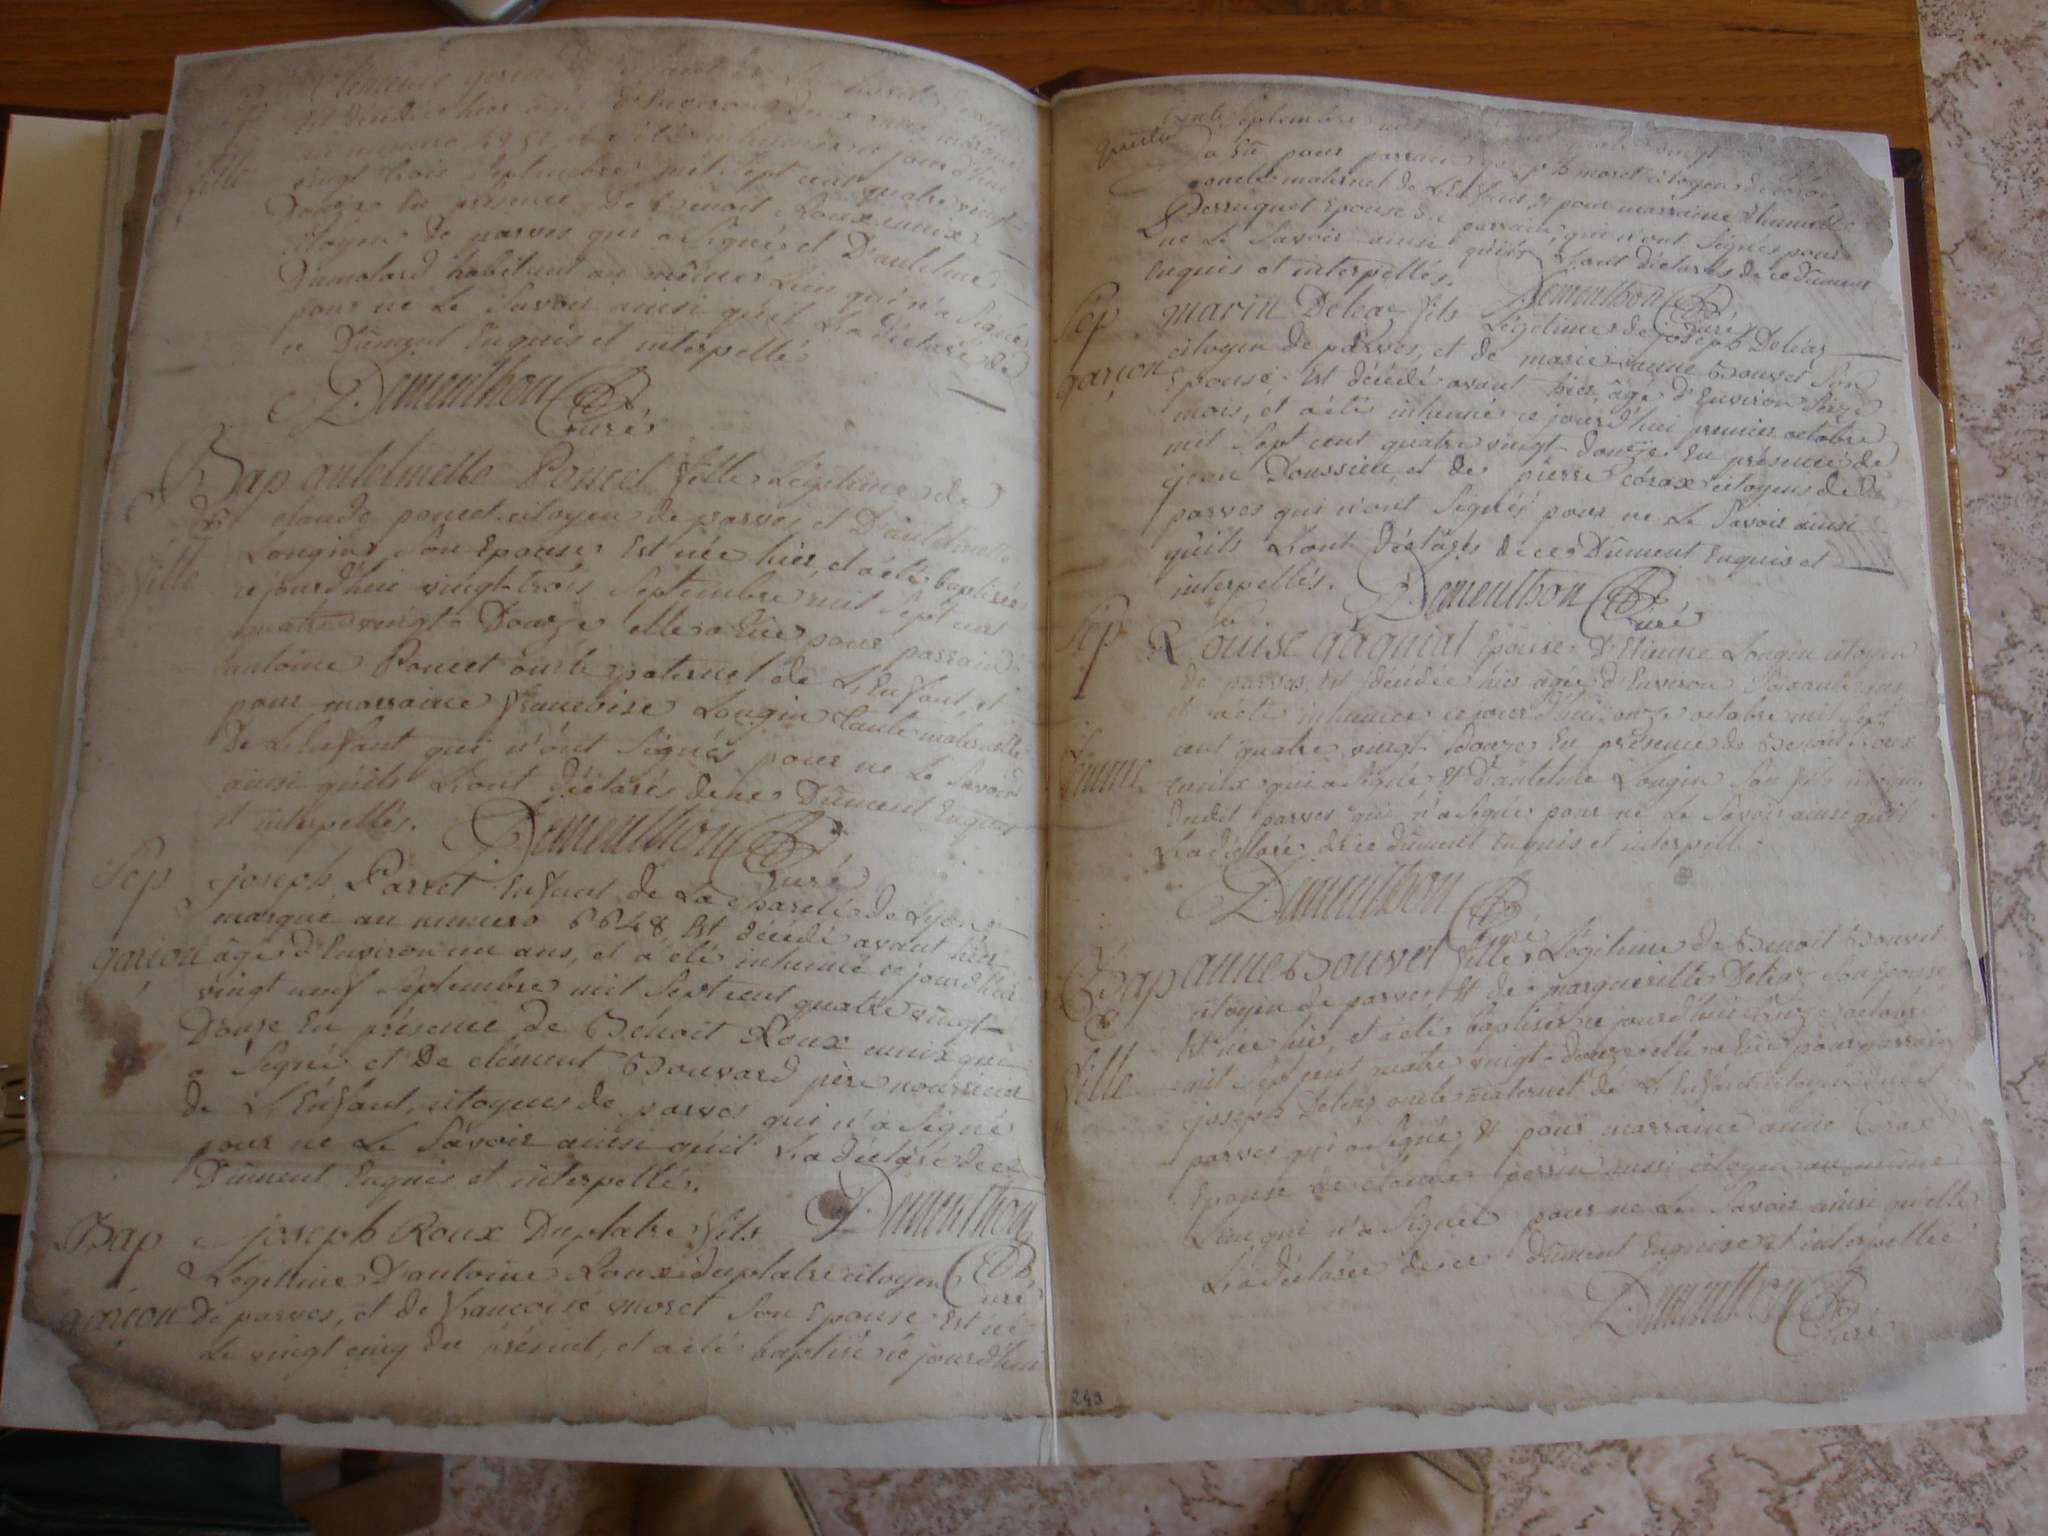 Sep
fille
est décédée hier âgée d'Environ deux ans marquée
au numero et a été inhumée ce jour d'hui
vingt trois septembre mil sept cent quatre vingt
Douze En présence de Benoit Roux cunix
citoyen de parves qui a Signé et D'antelme
Dumolard habitant au même Lieu qui n'a Signé
pour ne Le Savoir ainsi qu'il L'a déclaré de
ce Dûment Enquis et interpellé
Dementhon Curé
Bap
&
fille
antelmette Poncet fille Légitime de
claude poncet citoyen de parves et D'antelmette
Longin Son Epouse Est née hier, et a été baptisée
ce jourd'hui vingt-trois Septembre mil Sept cent
quatre vingt-Douze elle a Eüe pour parrain
antoine Poncet oncle paternel de L'Enfant, et
pour marraine francoise Longin tante maternelle
De L'Enfant qui n'ont Signés pour ne Le Savoir
ainsi qu'ils L'ont Déclarés de ce Dûment Enquis
et interpellés. Dementhon Curé
Sep
garçon
joseph Parret Enfant de La charité de Lyon
marqué au numero 6648 Est décédé avant hier
âgé d'Environ un ans, et a été inhumé ce jourd'hui
vingt neuf Septembre mil Sept cent quatre vingt-
Douze En présence de Bénoit Roux cunix qui
a Signé et De clément Bouvard père nourricier
de L'Enfant, citoyens de parves qui n'a Signé
pour ne Le Savoir ainsi qu'il L'a déclaré de ce
Dûment Enquis et interpellé.
Dementhon Curé
Bap
garçon
joseph Roux Duplatre fils
Légitime D'antoine Roux duplatre citoyen
de parves, et de francoise moret Son Epouse Est né
Le vingt cinq du présent, et a été baptisé ce jourd'hui
trente Septembre mil vingt
a Eü pour parrain moret citoyen
oncle maternel de L'Enfant et pour marraine
Perruquet Epouse du parrain, qui n'ont Signés pour
ne Le Savoir ainsi qu'ils L'ont déclarés de ce Dûment
Enquis et interpellés.
Dementhon Curé
Sep
garçon
marin Deleaz fils Légitime de joseph Deleaz
citoyen de parves, et de marie anne Bouvet Son
Epouse Est décédé avant hier, âgé d'Environ Seize
mois, et a été inhumé ce jourd'hui premier octobre
mil Sept cent quatre vingt-Douze En présence de
jean Doussieu, et de pierre Corax citoyens de
parves qui n'ont Signés pour ne Le Savoir ainsi
qu'ils L'ont Déclarés de ce Dûment Enquis et
interpellés. Dementhon Curé
Sep
femme
Louise gagnial Epouse D'Etienne Longin citoyen
de parves, Est décédée hier âgée d'Environ Soixante ans
et a été inhumée ce jour d'hui onze octobre mil Sept
cent quatre vingt-Douze En présence de Benoit Roux
cunix qui a Signé, et D'antelme Longin Son fils citoyen
dudit parves qui n'a Signé pour ne Le Savoir ainsi qu'il
L'a déclaré de ce dûment Enquis et interpellé
Dementhon Curé
Bap
&
fille
anne Bouvet fille Légitime de Benoit Bouvet
citoyen de parves et de margueritte Deleaz Son Epouse
Est née hier, et a été baptisée ce jourd'hui octobre
mil Sept cent quatre vingt-douze elle a Eüe pour parrain
joseph Deleaz oncle maternel de L'Enfant citoyen dudit
parves qui a Signé, et pour marraine anne Corax
Epouse de claude perrin aussi citoyen au même
Lieu qui n'a Signée pour ne Le Savoir ainsi qu'elle
L'a déclarée de ce dûment Enquise et interpellée
Dementhon Curé
249